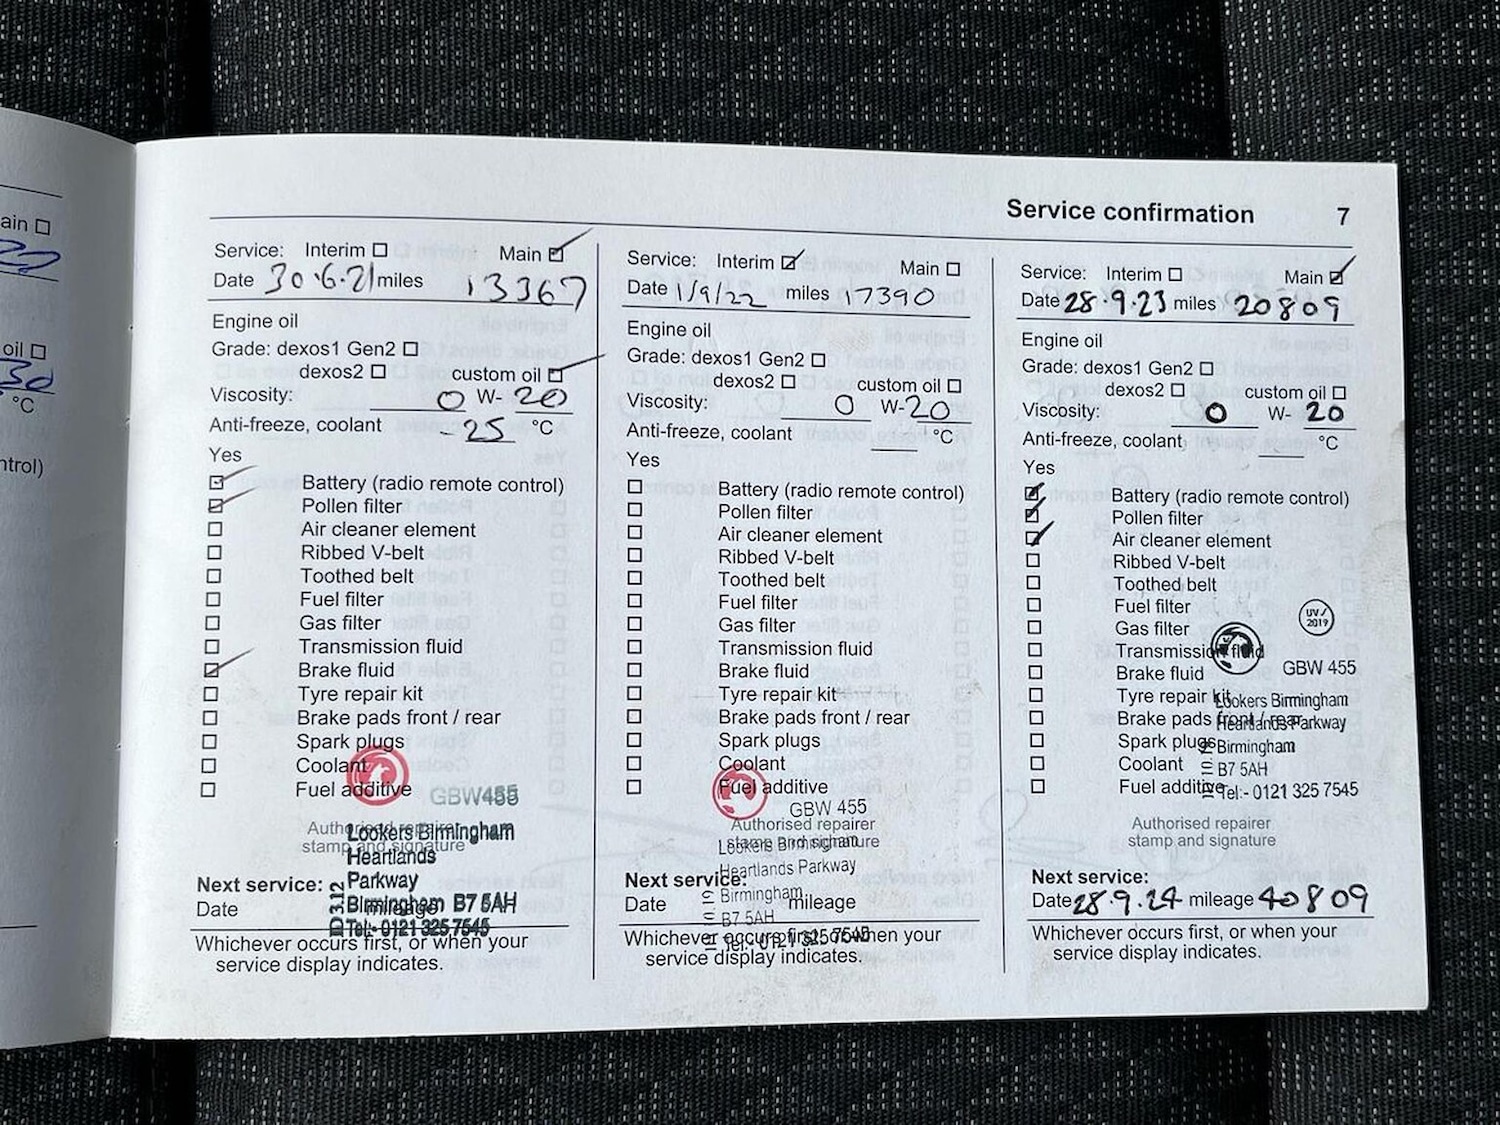 ain
oil
30
°C
ntrol)
Service confirmation 7
Service: Interim Main
Date 30.6.21 miles 13367
Engine oil
Grade: dexos1 Gen2
dexos2 custom oil
Viscosity: 0 W- 20
Anti-freeze, coolant -25 °C
Yes
Battery (radio remote control)
Pollen filter
Air cleaner element
Ribbed V-belt
Toothed belt
Fuel filter
Gas filter
Transmission fluid
Brake fluid
Tyre repair kit
Brake pads front / rear
Spark plugs
Coolant
Fuel additive
GBW455
Authorised repairer
stamp and signature
Lookers Birmingham
Heartlands
Parkway
Birmingham B7 5AH
Tel:- 0121 325 7545
Next service:
Date mileage
Whichever occurs first, or when your
service display indicates.
Service: Interim Main
Date 1/9/22 miles 17390
Engine oil
Grade: dexos1 Gen2
dexos2 custom oil
Viscosity: 0 W-20
Anti-freeze, coolant °C
Yes
Battery (radio remote control)
Pollen filter
Air cleaner element
Ribbed V-belt
Toothed belt
Fuel filter
Gas filter
Transmission fluid
Brake fluid
Tyre repair kit
Brake pads front / rear
Spark plugs
Coolant
Fuel additive
GBW 455
Authorised repairer
stamp and signature
Lookers Birmingham
Heartlands Parkway
Birmingham
B7 5AH
Tel:- 0121 325 7545
Next service:
Date mileage
Whichever occurs first, or when your
service display indicates.
Service: Interim Main
Date 28.9.23 miles 20809
Engine oil
Grade: dexos1 Gen2
dexos2 custom oil
Viscosity: 0 W- 20
Anti-freeze, coolant °C
Yes
Battery (radio remote control)
Pollen filter
Air cleaner element
Ribbed V-belt
Toothed belt
Fuel filter
Gas filter
Transmission fluid
Brake fluid
Tyre repair kit
Brake pads front / rear
Spark plugs
Coolant
Fuel additive
UV/
2019
GBW 455
Lookers Birmingham
Heartlands Parkway
Birmingham
B7 5AH
Tel:- 0121 325 7545
Authorised repairer
stamp and signature
Next service:
Date 28.9.24 mileage 40809
Whichever occurs first, or when your
service display indicates.